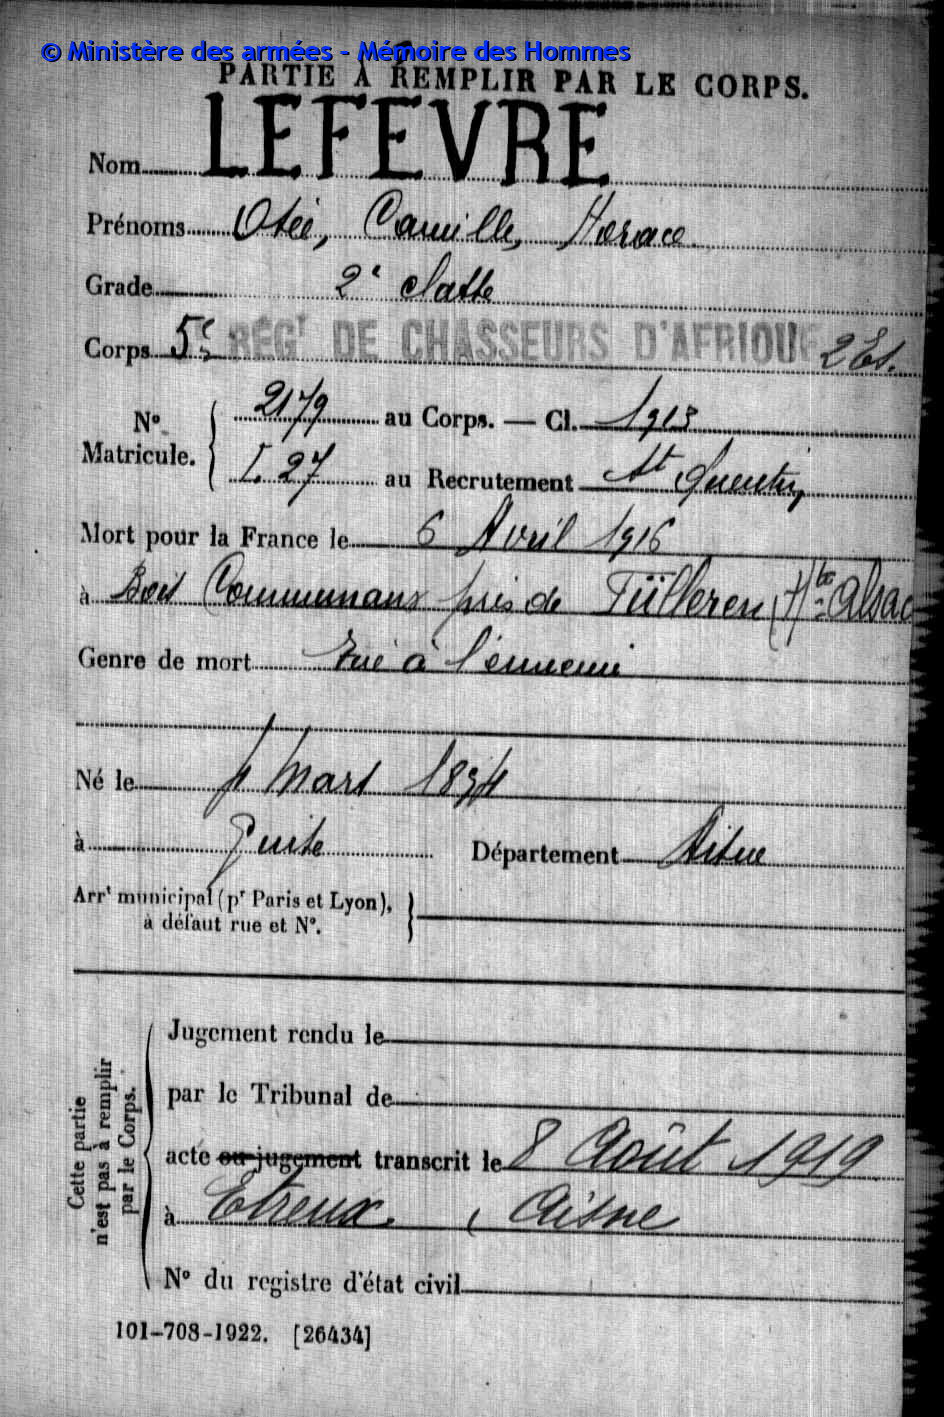 © Ministère des armées - Mémoire des Hommes
PARTIE À REMPLIR PAR LE CORPS.
Nom LEFEVRE
Prénoms Osée, Camille, Horace
Grade 2e classe
Corps 5e RÉGt DE CHASSEURS D'AFRIQUE 2 Et.
No Matricule. 2179 au Corps. — Cl. 1913
I. 27 au Recrutement St Quentin
Mort pour la France le 6 Avril 1916
à Bois Communaux près de Fülleren (Hte Alsace
Genre de mort Tué à l'ennemi
Né le Mars 1894
à Guise Département Aisne
Arrt municipal (pr Paris et Lyon),
à défaut rue et No.
Cette partie n'est pas à remplir par le Corps.
Jugement rendu le
par le Tribunal de
acte ou jugement transcrit le 8 Août 1919
à Etreux, (Aisne
No du registre d'état civil
101-708-1922. [26434]